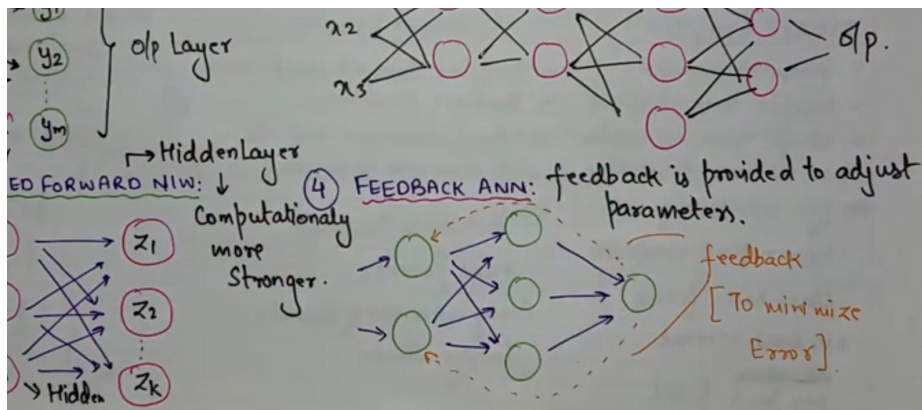 y1
y2
ym
O/p Layer
x2
x3
O/p.
→ Hidden Layer
ED FORWARD N/W:
Computationaly
more
Stronger.
Z1
Z2
Zk
Hidden
4 FEEDBACK ANN: feedback is provided to adjust
parameters.
feedback
[To minimize
Error].